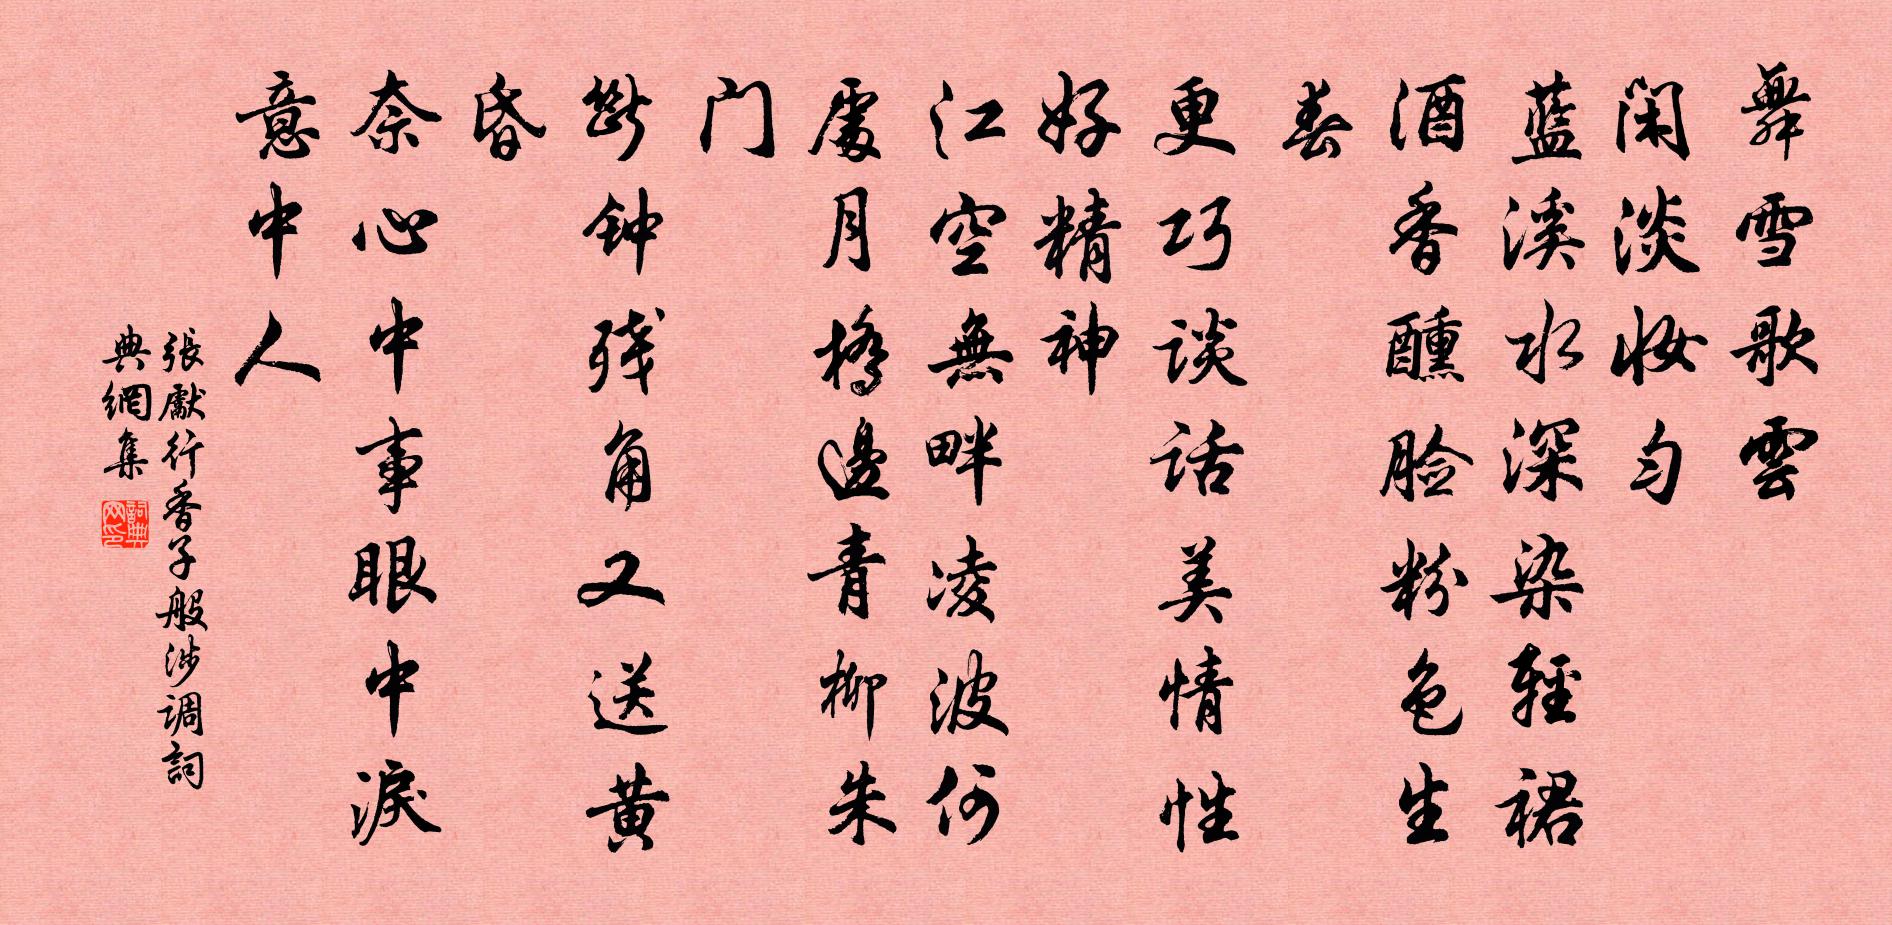 舞雪歌雲
閑淡妝勻
藍溪水深染輕裙
酒香醺臉粉色生
春
更巧談話美情性
好精神
江空無畔凌波何
處月橋邊青柳朱
门
斷钟残角又送黃
昏
奈心中中事眼中淚
意中人
張獻行香子般涉调詞
典網集
詞典网印